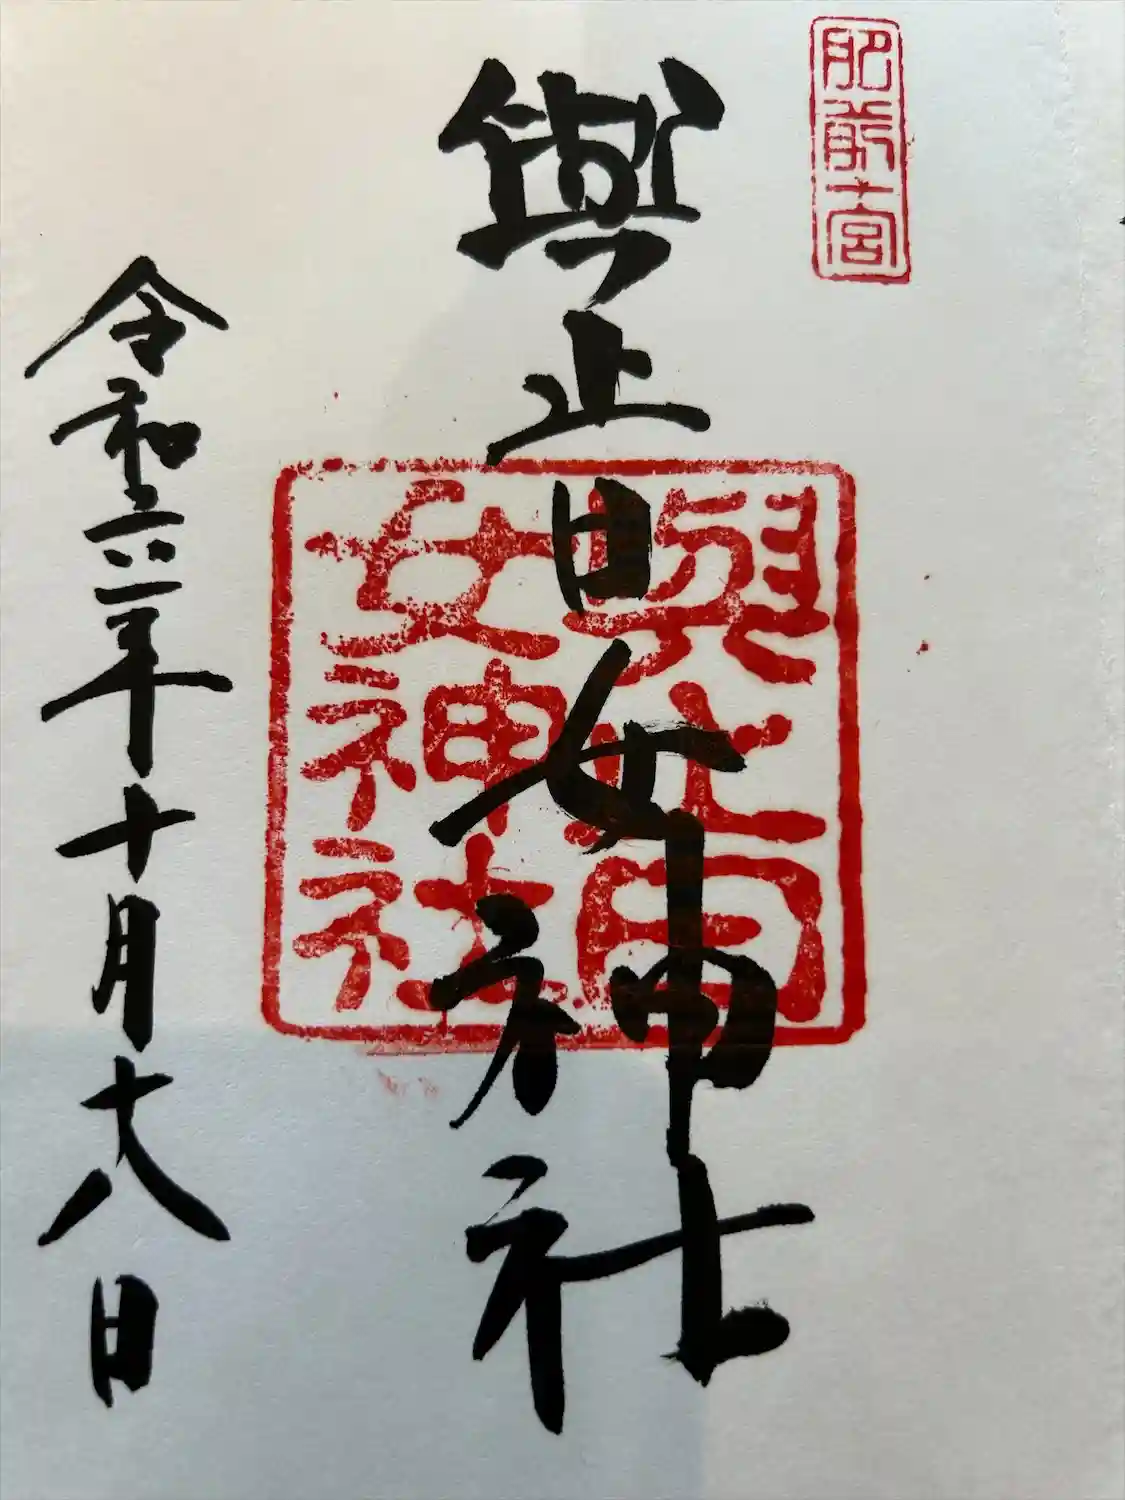 肥前一宮
與止日女神社
與止日女神社
令和六年十月十八日